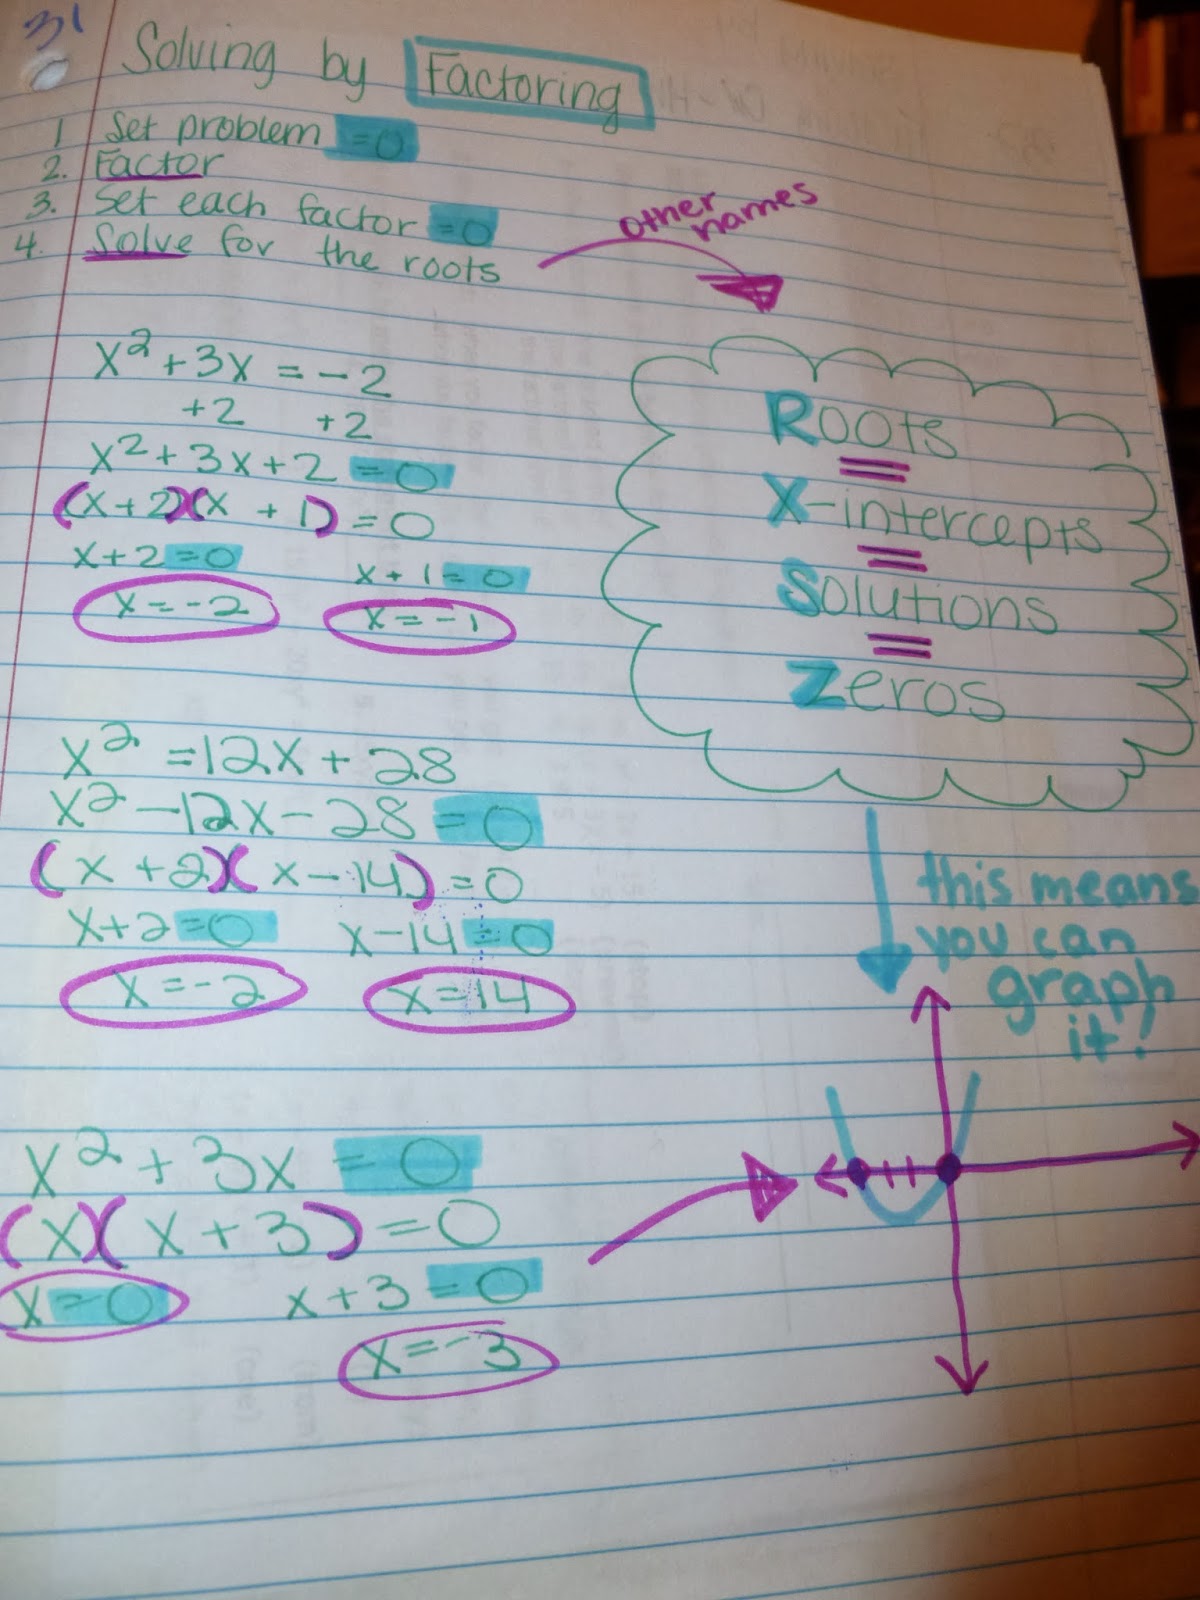 31
Solving by Factoring
1 Set problem =0
2. Factor
3. Set each factor =0
4. Solve for the roots
other names
x² + 3x = -2
+2 +2
x² + 3x + 2 = 0
(x + 2)(x + 1) = 0
x + 2 = 0 x + 1 = 0
x = -2 x = -1
Roots
=
X-intercepts
=
Solutions
=
Zeros
x² = 12x + 28
x² - 12x - 28 = 0
(x + 2)(x - 14) = 0
x + 2 = 0 x - 14 = 0
x = -2 x = 14
this means
you can
graph
it!
x² + 3x = 0
(x)(x + 3) = 0
x = 0 x + 3 = 0
x = -3